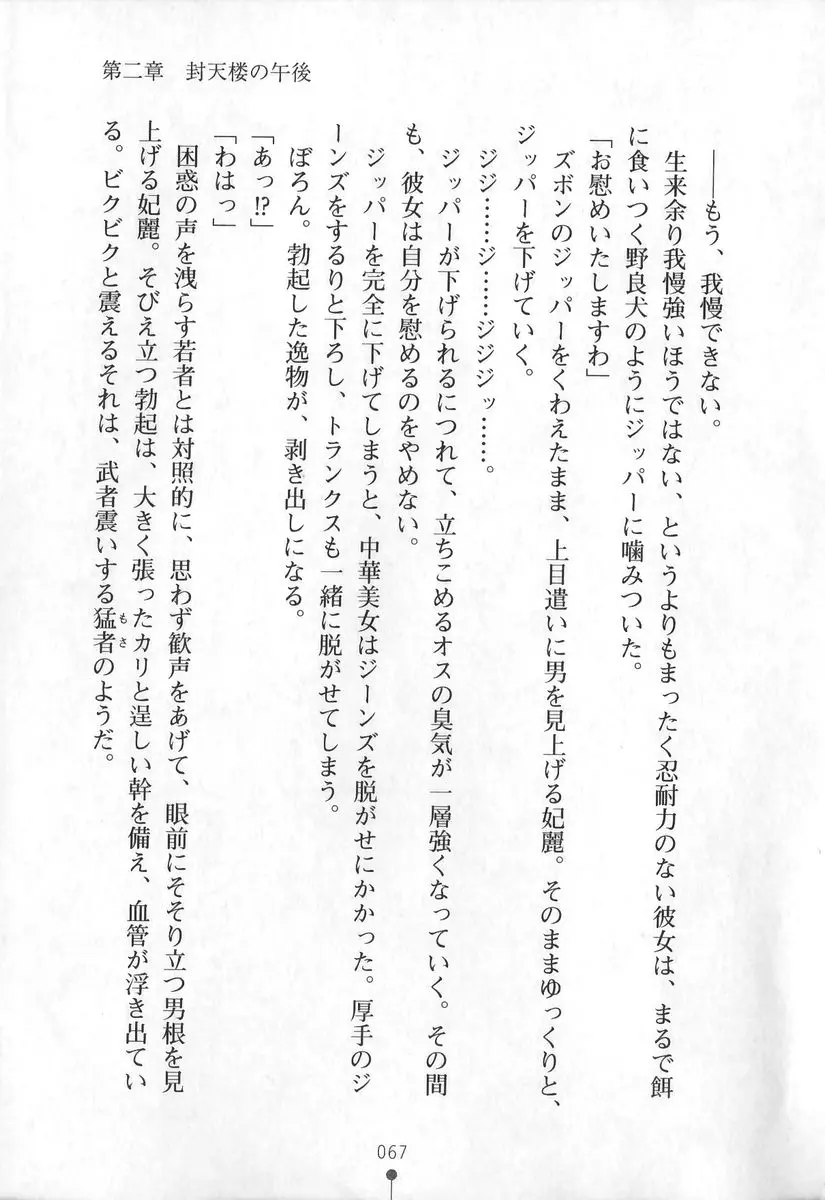 第二章　封天楼の午後
――もう、我慢できない。
生来余り我慢強いほうではない、というよりもまったく忍耐力のない彼女は、まるで餌
に食いつく野良犬のようにジッパーに噛みついた。
「お慰めいたしますわ」
ズボンのジッパーをくわえたまま、上目遣いに男を見上げる妃麗。そのままゆっくりと、
ジッパーを下げていく。
ジジ……ジ……ジジジッ……。
ジッパーが下げられるにつれて、立ちこめるオスの臭気が一層強くなっていく。その間
も、彼女は自分を慰めるのをやめない。
ジッパーを完全に下げてしまうと、中華美女はジーンズを脱がせにかかった。厚手のジ
ーンズをするりと下ろし、トランクスも一緒に脱がせてしまう。
ぼろん。勃起した逸物が、剥き出しになる。
「あっ!?」
「わはっ」
困惑の声を洩らす若者とは対照的に、思わず歓声をあげて、眼前にそそり立つ男根を見
上げる妃麗。そびえ立つ勃起は、大きく張ったカリと逞しい幹を備え、血管が浮き出てい
る。ビクビクと震えるそれは、武者震いする猛者のようだ。
もさ
067